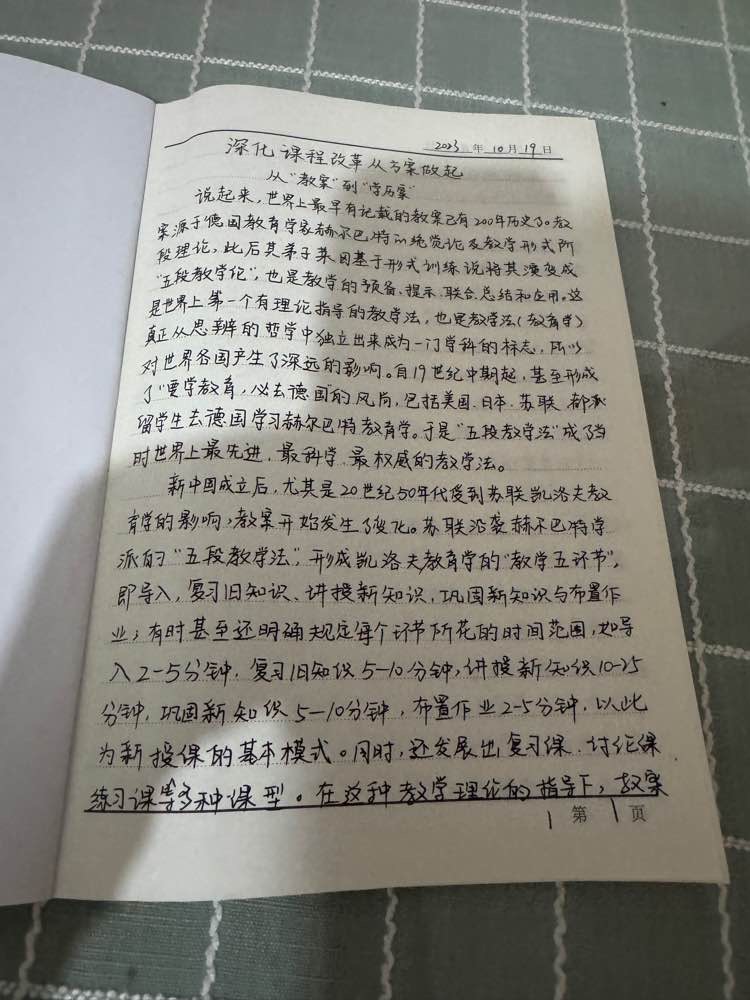 2023 年 10 月 19 日
深化课程改革从方案做起
从“教案”到“学历案”
说起来，世界上最早有记载的教案已有200年历史了。教
案源于德国教育学家赫尔巴特的统觉论及教学形式阶
段理论，此后其弟子莱因基于形式训练说将其演变成
“五段教学伦”，也是教学的预备、提示、联合、总结和应用。这
是世界上第一个有理论指导的教学法，也是教学法（教育学）
真正从思辨的哲学中独立出来成为一门学科的标志，所以
对世界各国产生了深远的影响。自19世纪中期起，甚至形成
了“要学教育，必去德国”的风向，包括美国、日本、苏联都派
留学生去德国学习赫尔巴特教育学。于是“五段教学法”成了当
时世界上最先进、最科学、最权威的教学法。
新中国成立后，尤其是20世纪50年代受到苏联凯洛夫教
育学的影响，教案开始发生了变化。苏联沿袭赫尔巴特学
派的“五段教学法”，形成凯洛夫教育学的“教学五环节”，
即导入，复习旧知识、讲授新知识，巩固新知识与布置作
业；有时甚至还明确规定每个环节所花的时间范围，如导
入2-5分钟，复习旧知识5-10分钟，讲授新知识10-25
分钟，巩固新知识5-10分钟，布置作业2-5分钟，以此
为新授课的基本模式。同时，还发展出复习课、讨论课
练习课等多种课型。在这种教学理论的指导下，教案
第 1 页